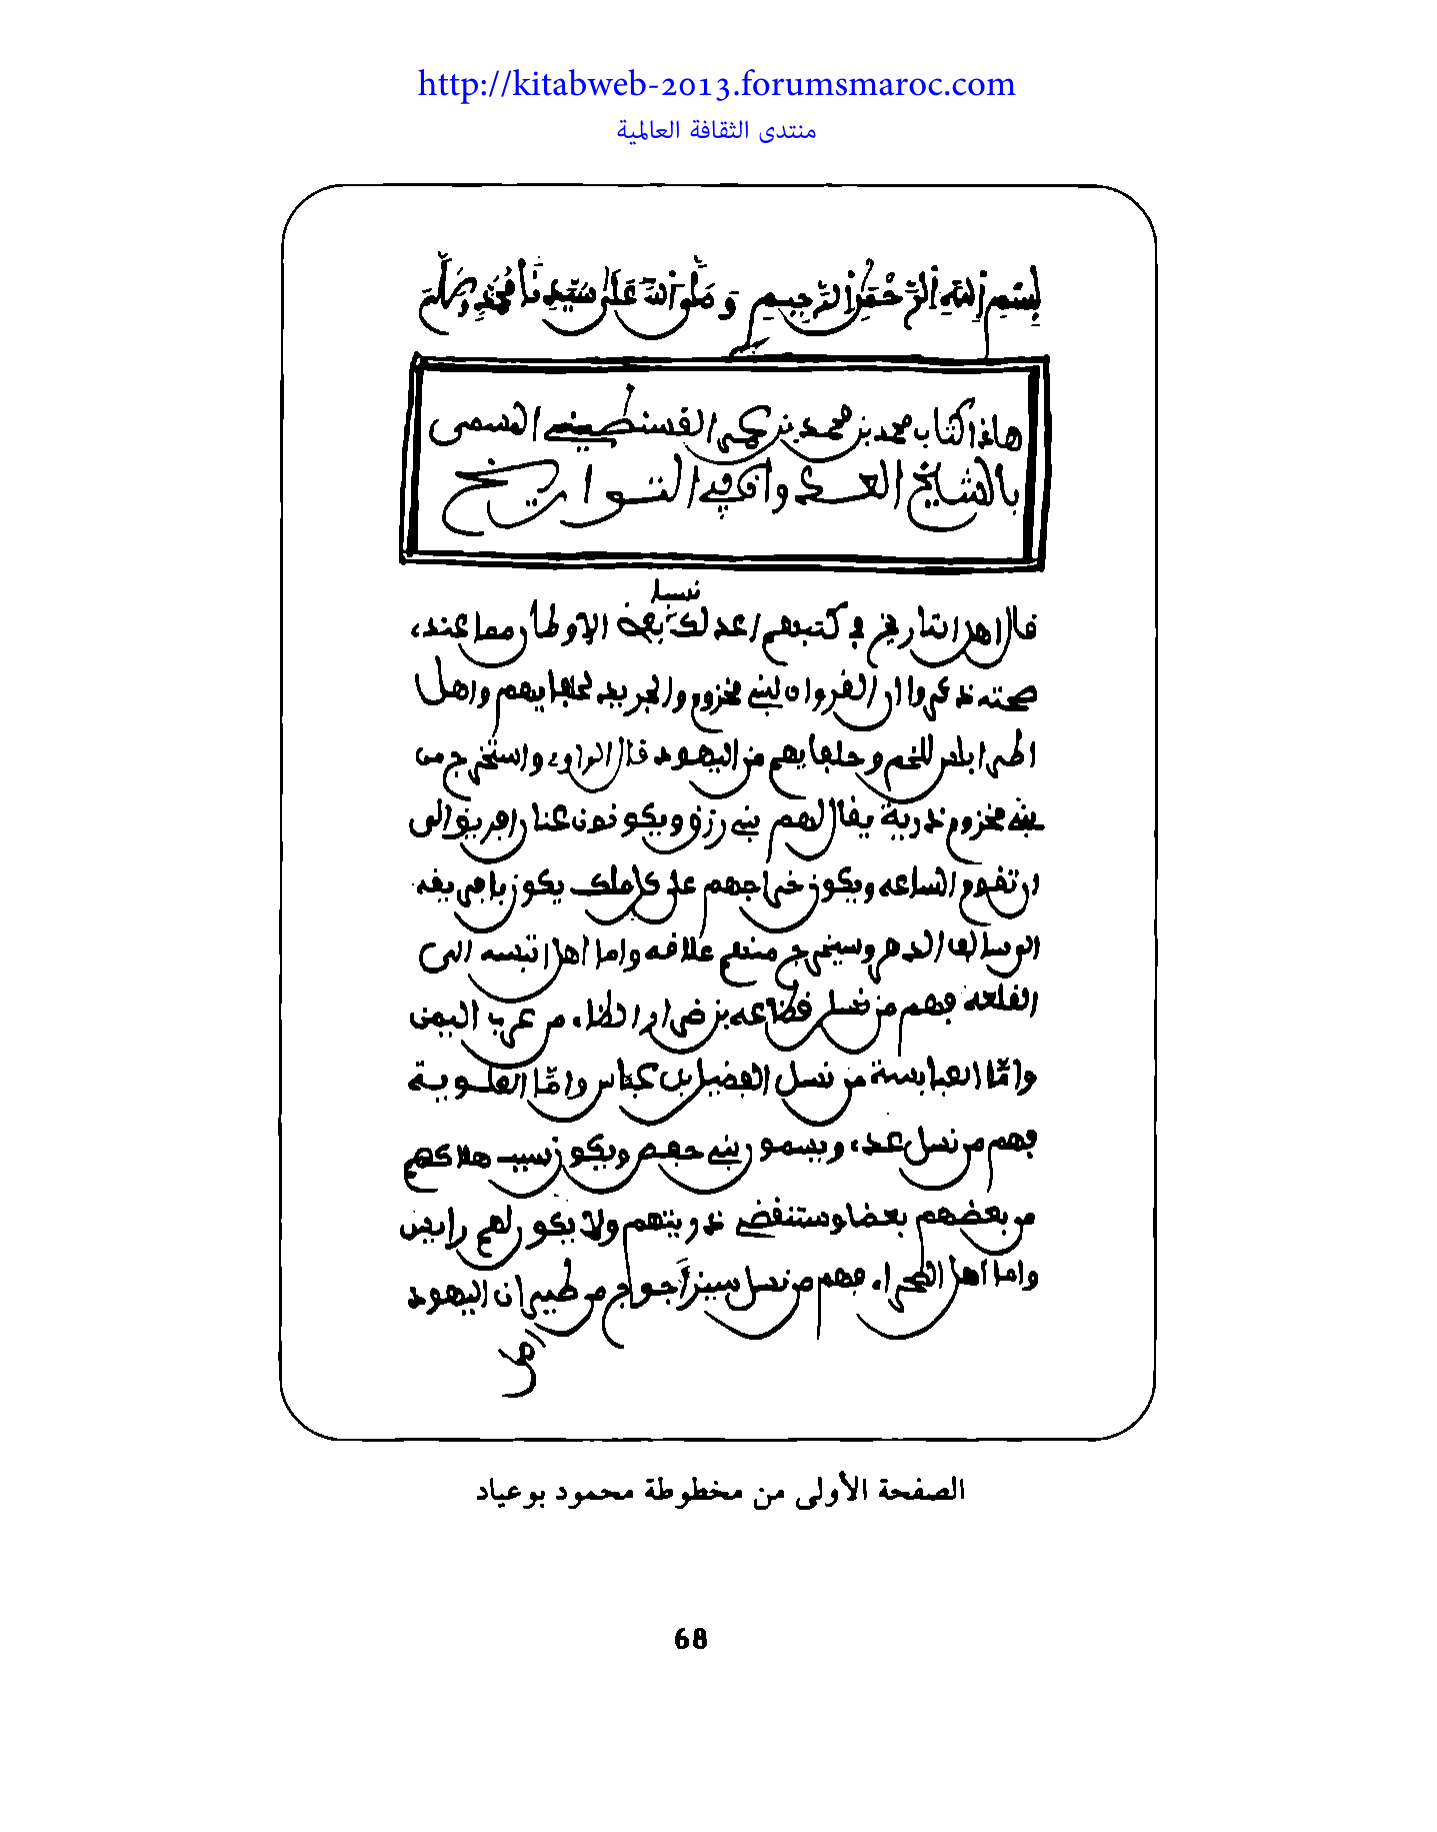 http://kitabweb-2013.forumsmaroc.com
منتدى الثقافة العالمية
بِسْمِ اللهِ الرَّحْمَنِ الرَّحِيمِ وَصَلَّى اللهُ عَلَى سَيِّدِنَا مُحَمَّدٍ وسلم
هاذا الكتاب محمد بن محمد بن القسنطيني المسمى
بالشايخ العدواني في التواريخ
قال اهل التاريخ في كتبهم اعد لك نسبا بعض الاوطان مما عنده
صحته ذكروا ان القروان لبني مخزوم والجريد لحلفايهم واهل
اطرابلس للخم وحلفايهم من اليهود قال الراوي واستخرج من
بني مخزوم ذرية يقال لهم بني رزق ويكونون عنا بافريق الى
ان تقوم الساعه ويكون خراجهم على كل ملك يكون بافريقه
الى سالف الدهر وسيخرج منهم علاقه واما أهل تبسه الى
القلعه فهم من نسل قضاعه بن ضرار من عرب اليمن
وامّا العبابسة من نسل الفضيل بن عباس وامّا العلوية
فهم من نسل عده ويسمون بني حفص ويكون سبب هلاكهم
من بعضهم بعضا وستنقضي ذريتهم ولا يكون لهم رايس
واما أهل الصحراء فهم من نسل سيرا جوج من طيران اليهود
الصفحة الأولى من مخطوطة محمود بوعياد
68